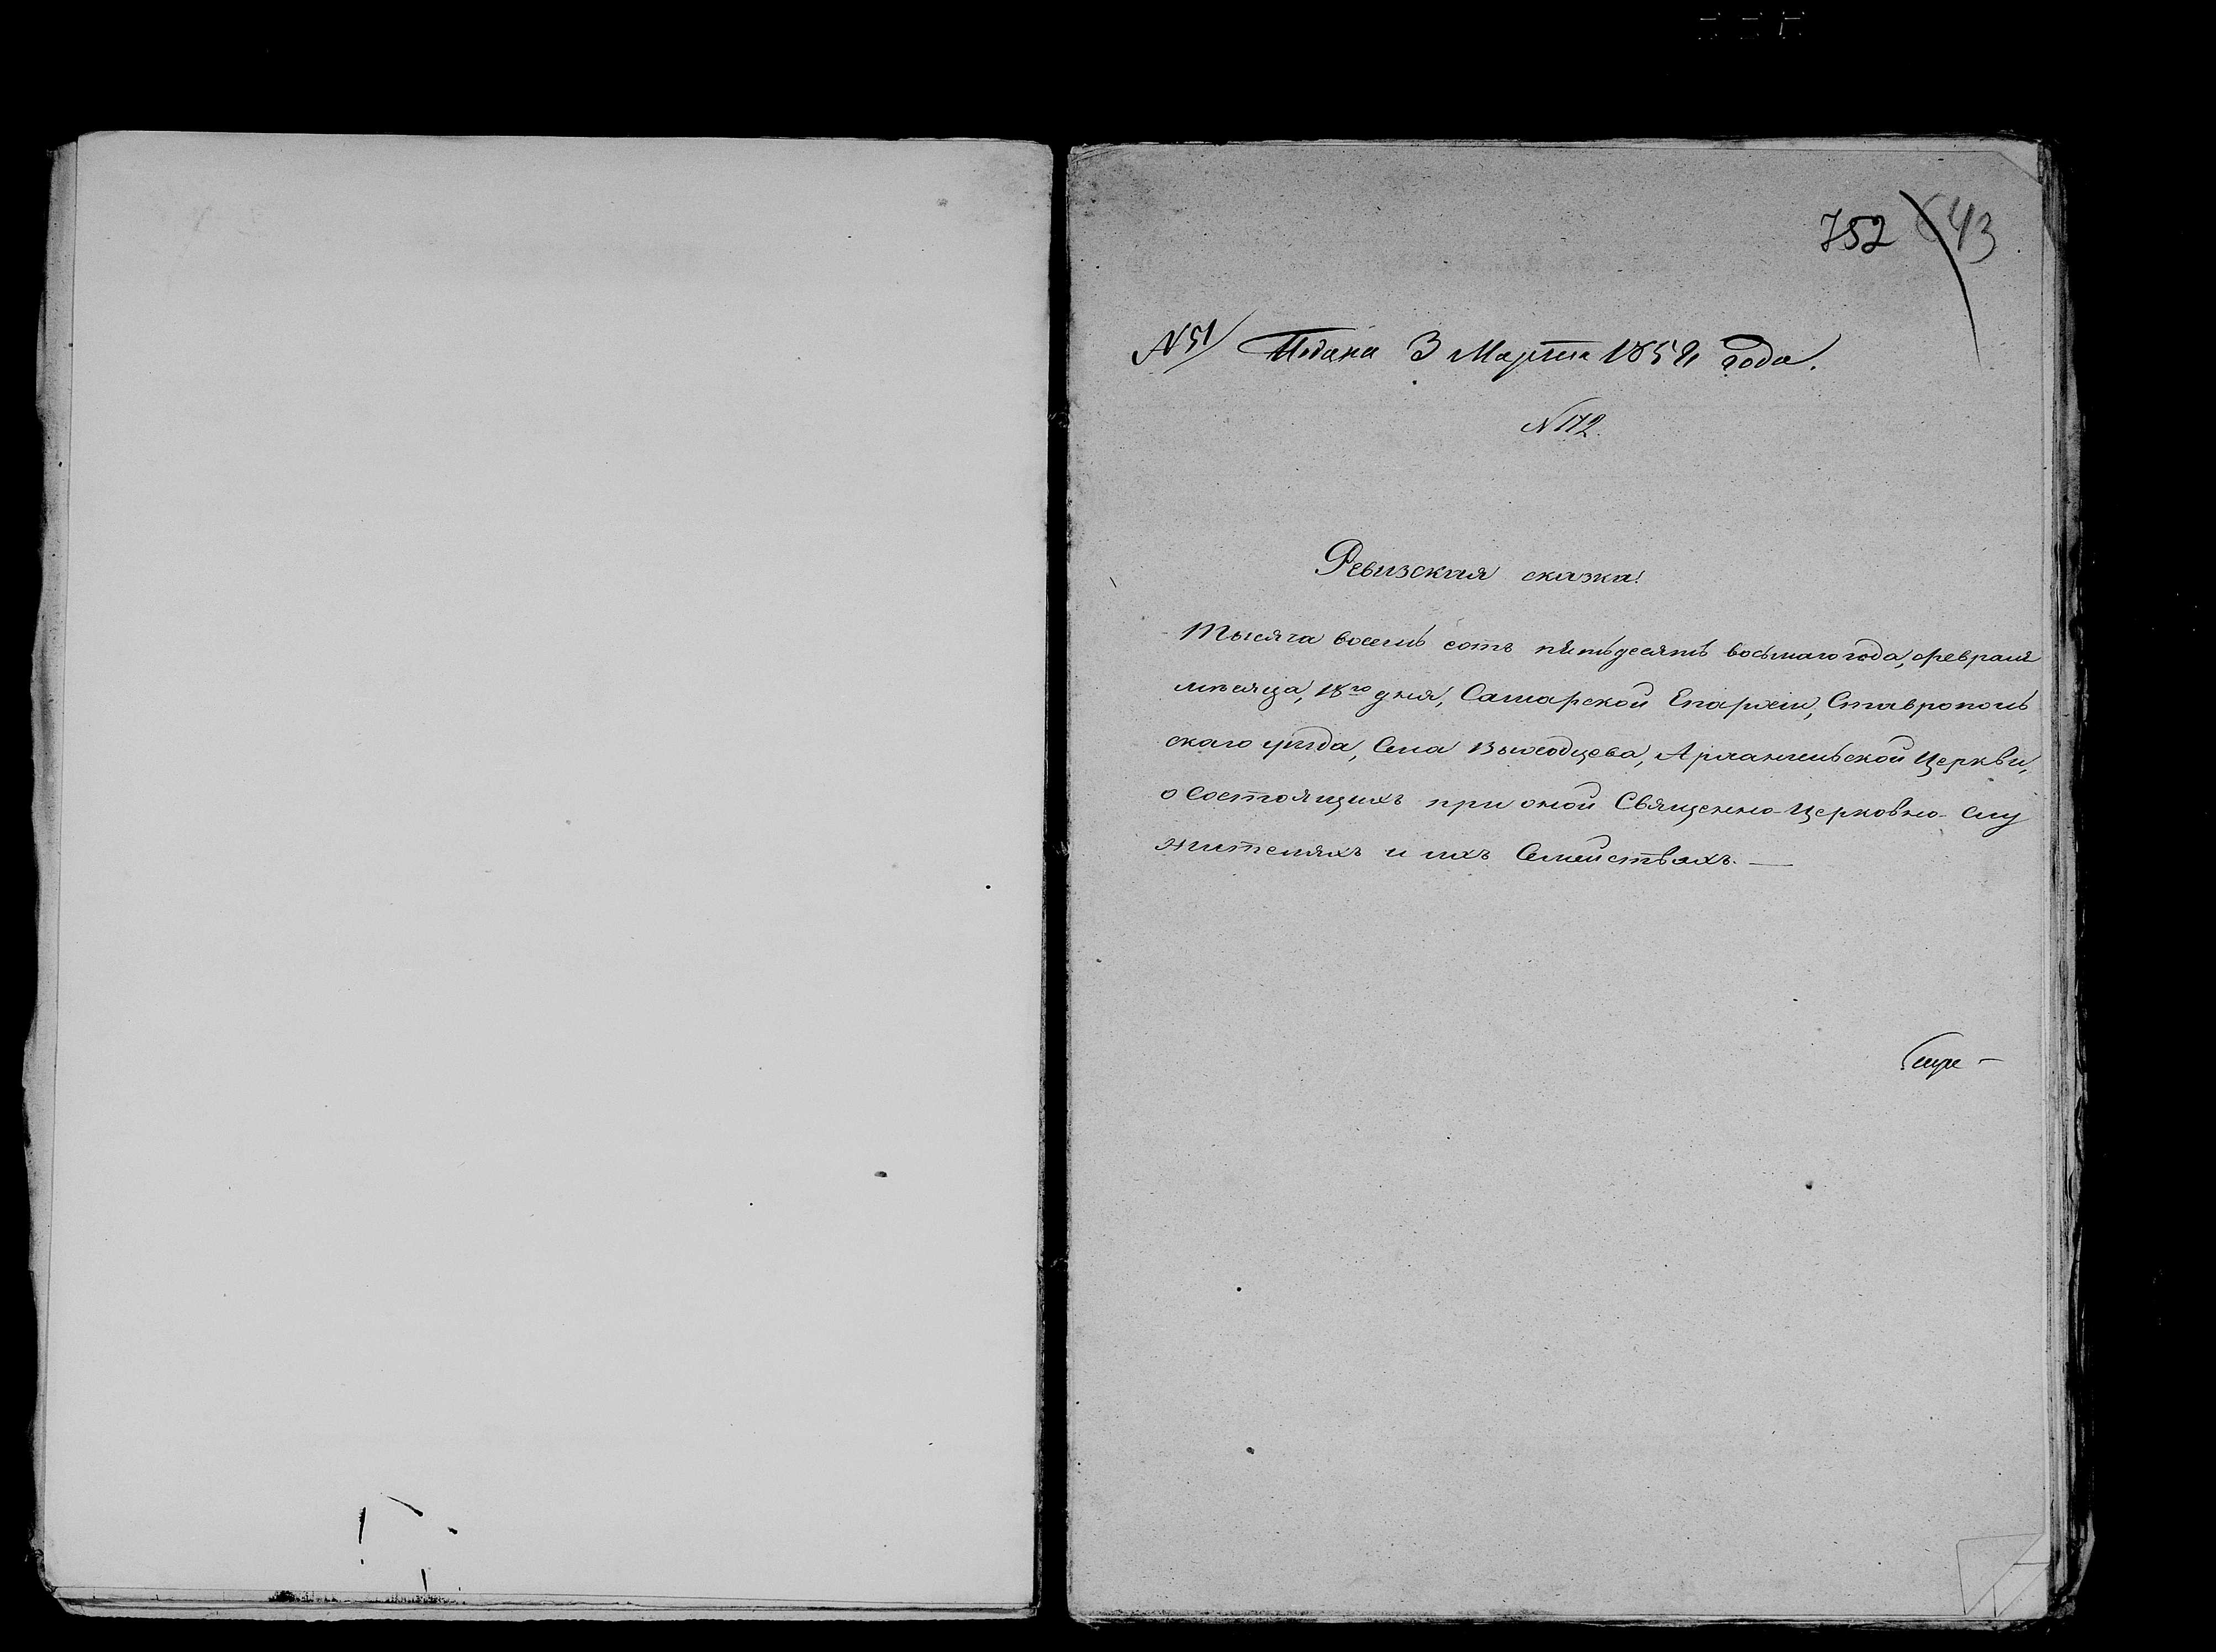 752 643
N 51 Подана 3 Марта 1858 года.
N 172.
Ревизская сказка!
Тысяча восемь сотъ пятьдесятъ восьмаго года, февраля
мѣсяца, 18го дня, Самарской Епархіи, Ставрополь
скаго уѣзда, Села Выходцева, Архангельской Церкви,
о Состоящихъ при оной Священно-Церковно-Слу
жителяхъ и ихъ Семействахъ. —